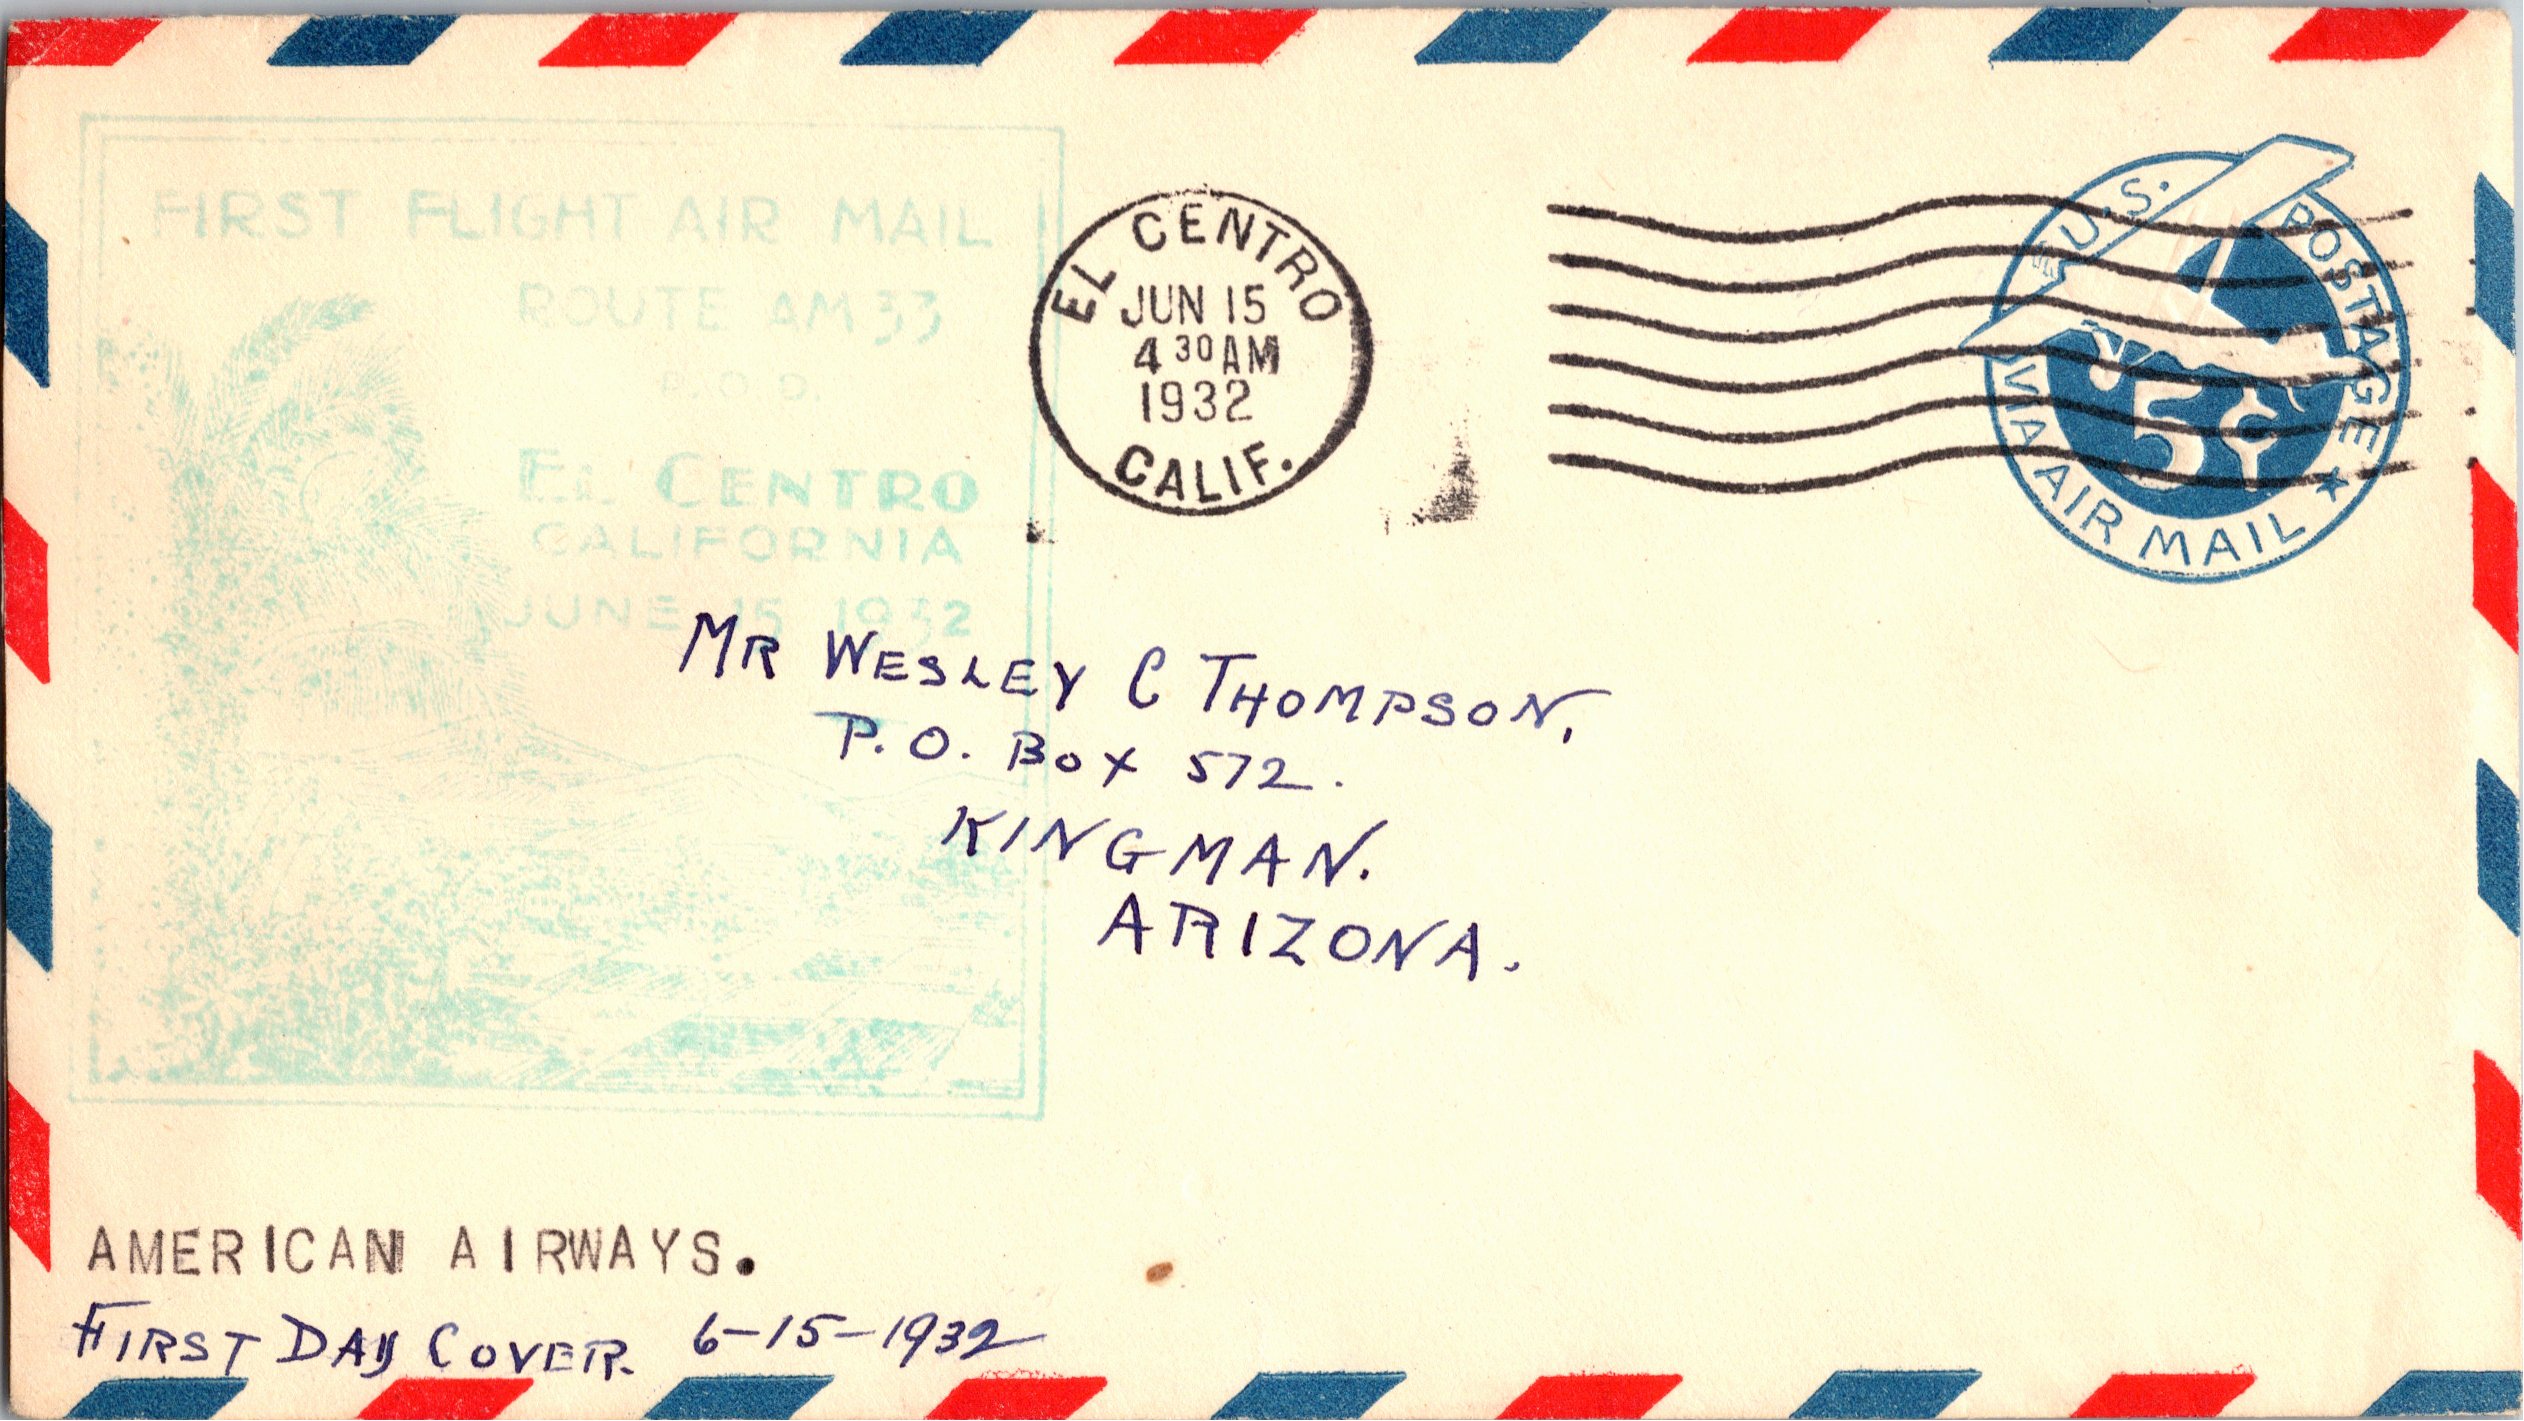 FIRST FLIGHT AIR MAIL
ROUTE AM 33
P.O.D.
EL CENTRO
CALIFORNIA
JUNE 15 1932
EL CENTRO
JUN 15
4 30 AM
1932
CALIF.
U.S. POSTAGE
5¢
VIA AIR MAIL
MR WESLEY C THOMPSON,
P.O. BOX 572.
KINGMAN.
ARIZONA.
AMERICAN AIRWAYS.
FIRST DAY COVER. 6-15-1932